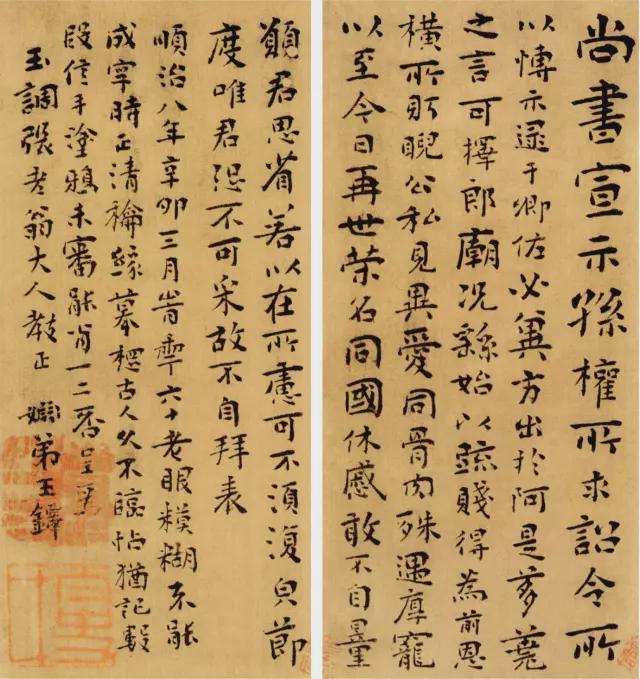 尚書宣示孫權所求詔令所
以博示逮于卿佐必冀方出於阿是芻蕘
之言可擇郎廟況繇始以疏賤得為前恩
橫所盼睨公私見異愛同骨肉殊遇厚寵
以至今日再世榮名同國休慼敢不自量
願君思省若以在所慮可不須復皃節
度唯君恐不可采故不自拜表
順治八年辛卯三月六十老眼糢糊不能
成寧時正清摹古人久不臨帖猶記數
段信手塗鴉未審能肖一二否呈
玉調張老翁大人教正 姻弟王鐸